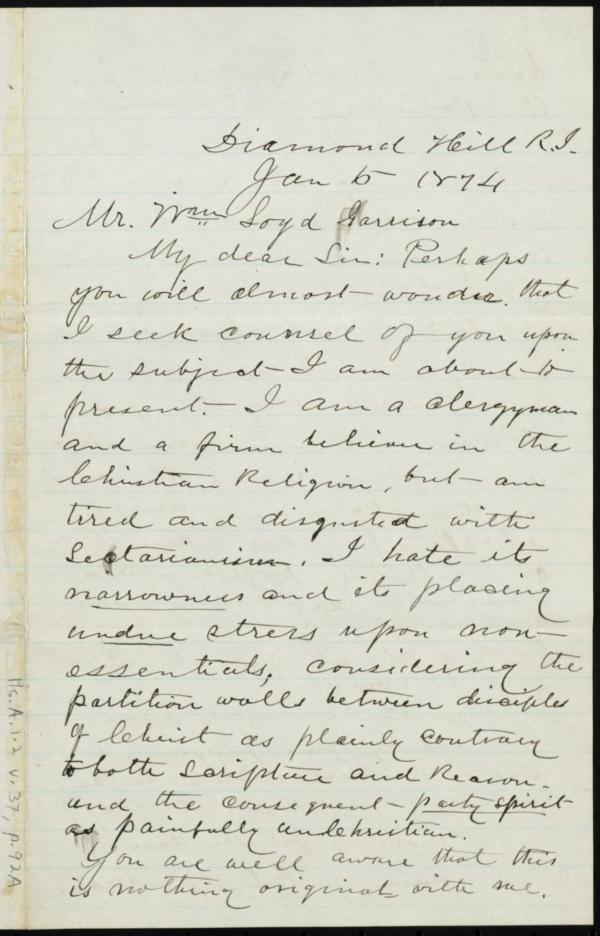 Diamond Hill R.I.
Jan 5 1874
Mr. Wm Loyd Garrison
My dear Sir: Perhaps
you will almost wonder that
I seek counsel of you upon
the subject I am about to
present. I am a clergyman
and a firm believer in the
Christian Religion, but am
tired and disgusted with
Sectarianism. I hate its
narrowness and its placing
undue stress upon non-
essentials, considering the
partition walls between disciples
of Christ as plainly contrary
to both Scripture and Reason.
and the consequent party spirit
as painfully unChristian.
You are well aware that this
is nothing original with me.
Ms.A.1.2 v.37, p.92A